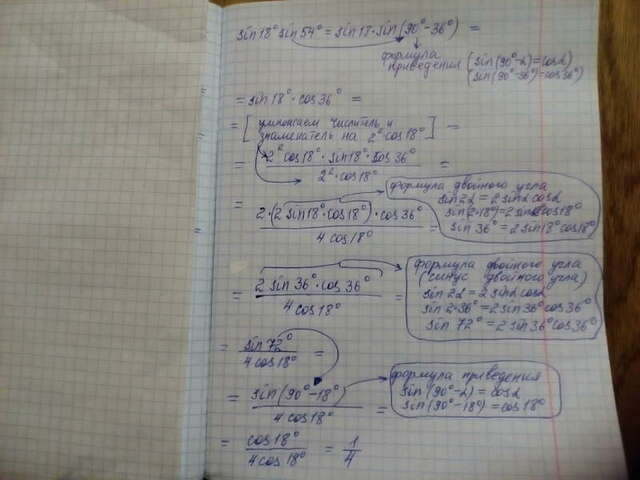 sin18° sin54° = sin18·sin(90°-36°) =
формула приведения
[sin(90°-α)=cosα
(sin(90°-36°)=cos36°
= sin18°·cos36° =
= [умножаем числитель и знаменатель на 2² cos18°] =
= 2² cos18°·sin18°·cos36° =
2²·cos18°
= 2·(2sin18°·cos18°)·cos36° =
4cos18°
формула двойного угла
sin2α = 2sinα cosα
sin(2·18°)=2sin18°cos18°
sin36° = 2sin18°cos18°
= 2sin36°·cos36° =
4cos18°
формула двойного угла
(синус двойного угла)
sin2α = 2sinα cosα
sin2·36°=2sin36°cos36°
sin72° = 2sin36°cos36°
= sin72° =
4cos18°
= sin(90°-18°) =
4cos18°
формула приведения
sin(90°-α) = cosα
sin(90°-18°) = cos18°
= cos18° = 1
4cos18° 4